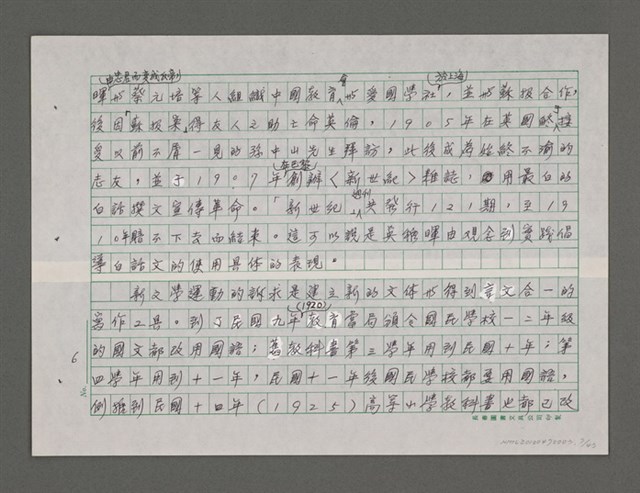 (由忠君而變成反帝)
會
(於上海)
暉形蔡元培等人組織中國教育形愛國學社,並形蘇報合作,
後因「蘇報案」得友人之助亡命英倫,1905年在英國終接
受以前不屑一見的孫中山先生拜訪,此後成為始終不渝的
(在巴黎)
志友,並于1907年創辦〈新世紀〉雜誌,用最白的
週刊
白話撰文宣傳革命。「新世紀」共發行121期,至19
10年賠不下去而結束。這可以說是吳稚暉由觀念到實踐倡
導白話文的使用具体的表現。
新文學運動的訴求是建立新的文体形得到言文合一的
(1920)
寫作工具。到了民國九年教育當局頒令國民學校一二年級
的國文都改用國語;舊教科書第三學年用到民國十年;第
四學年用到十一年,民國十一年後國民學校都要用國語,
例推到民國十四年(1925)高等小學教科書也都已改
6
No.